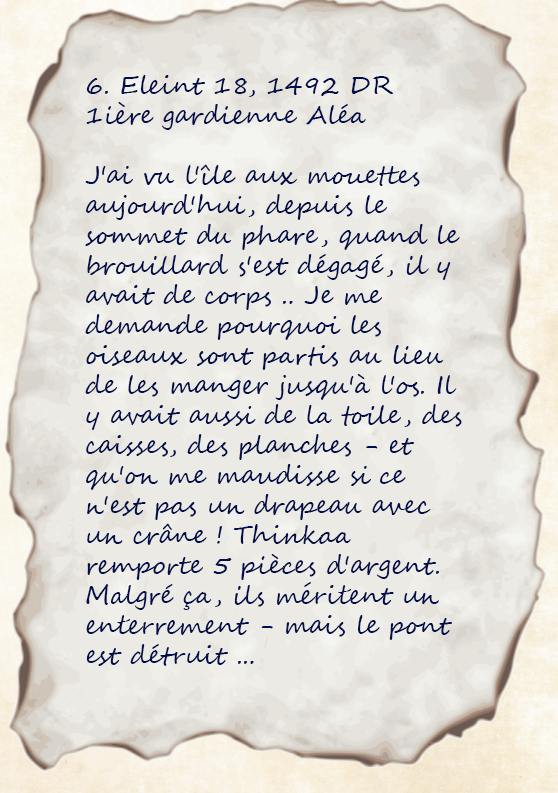 6. Eleint 18, 1492 DR
1ière gardienne Aléa
J'ai vu l'île aux mouettes
aujourd'hui, depuis le
sommet du phare, quand le
brouillard s'est dégagé, il y
avait de corps .. Je me
demande pourquoi les
oiseaux sont partis au lieu
de les manger jusqu'à l'os. Il
y avait aussi de la toile, des
caisses, des planches - et
qu'on me maudisse si ce
n'est pas un drapeau avec
un crâne ! Thinkaa
remporte 5 pièces d'argent.
Malgré ça, ils méritent un
enterrement - mais le pont
est détruit ...